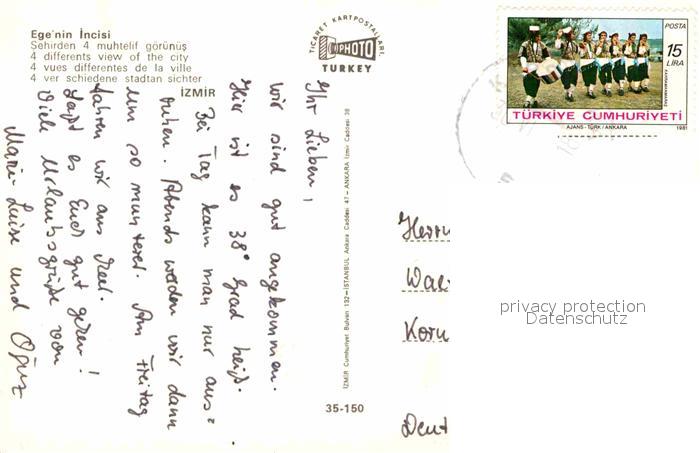 Ege'nin İncisi
Şehirden 4 muhtelif görünüş
4 differents view of the city
4 vues differentes de la ville
4 ver schiedene stadtan sichter
İZMİR
TİCARET KARTPOSTALLARI,
PHOTO
TURKEY
POSTA
15
LİRA
TÜRKİYE CUMHURİYETİ
AJANS-TÜRK/ANKARA
1981
Ihr Lieben,
wir sind gut angekommen.
Hier ist es 38° Grad heiß.
Bei Tag kann man nur aus=
ruhen. Abends werden wir dann
um so munterer. Am Freitag
fahren wir ans Meer.
Laßt es Euch gut gehen!
Viele Urlaubsgrüße von
Marie Luise und Oğuz
İZMİR Cumhuriyet Bulvarı 132-İSTANBUL Ankara Caddesi 47 - ANKARA İzmir Caddesi 38
35-150
Herrn
Wal
Korn
Deut
privacy protection
Datenschutz